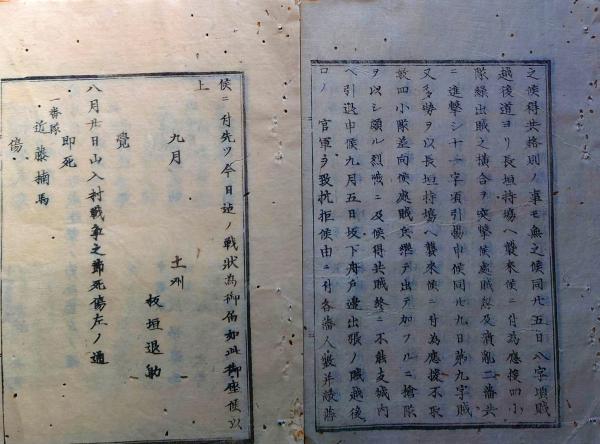 之候得共格別ノ事モ無之候同廿五日八字頃賊
越後道ヨリ長垣持場ヘ襲来候ニ付為應援四小
隊繰出賊之横合ヲ突撃候處賊忽及潰亂二藩共
ニ進撃シ十一字頃引揚申候同廿九日第九字賊
又多勢ヲ以長垣持場ヘ襲来候ニ付為應援不取
敢四小隊差向候處賊兵樂テ出テ加フルニ槍隊
ヲ以シ頗ル烈戰ニ及候得共賊終ニ不能支城内
ヘ引退申候九月五日坂下舟戸邊出張ノ賊越後
口ノ 官軍ヲ致抗拒候由ニ付各藩人数并殘
候ニ付先ツ今日迠ノ戰状為御届如此御座候以
上
九月 土州
板垣退助
覺
八月廿日山入村戰争之節死傷左ノ通
即死
一番隊
近藤楠馬
傷